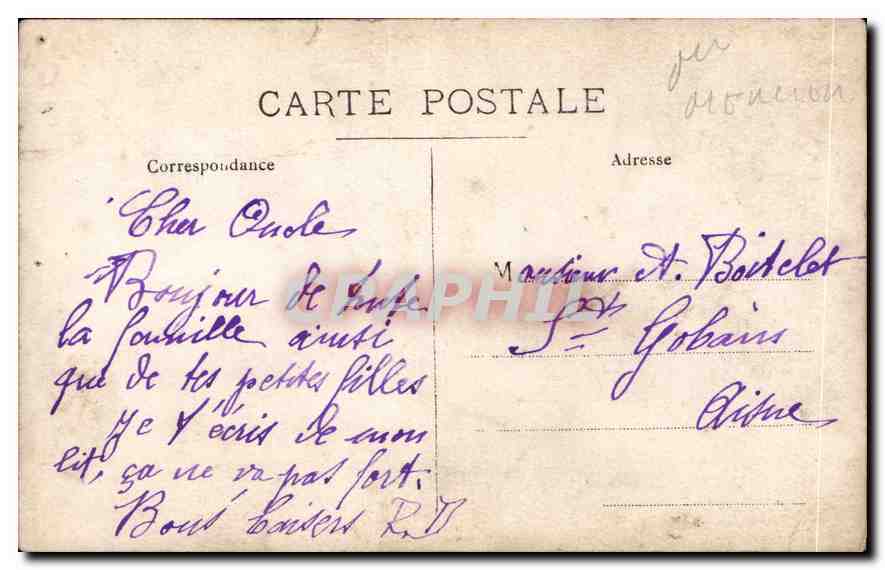 CARTE POSTALE
Correspondance
Adresse
Cher Oncle
Bonjour de toute
la famille ainsi
que de tes petites filles
Je t'écris de mon
lit, ça ne va pas fort.
Bons baisers R.B
Monsieur A. Boitelet
St Gobain
Aisne
CPAPHIL